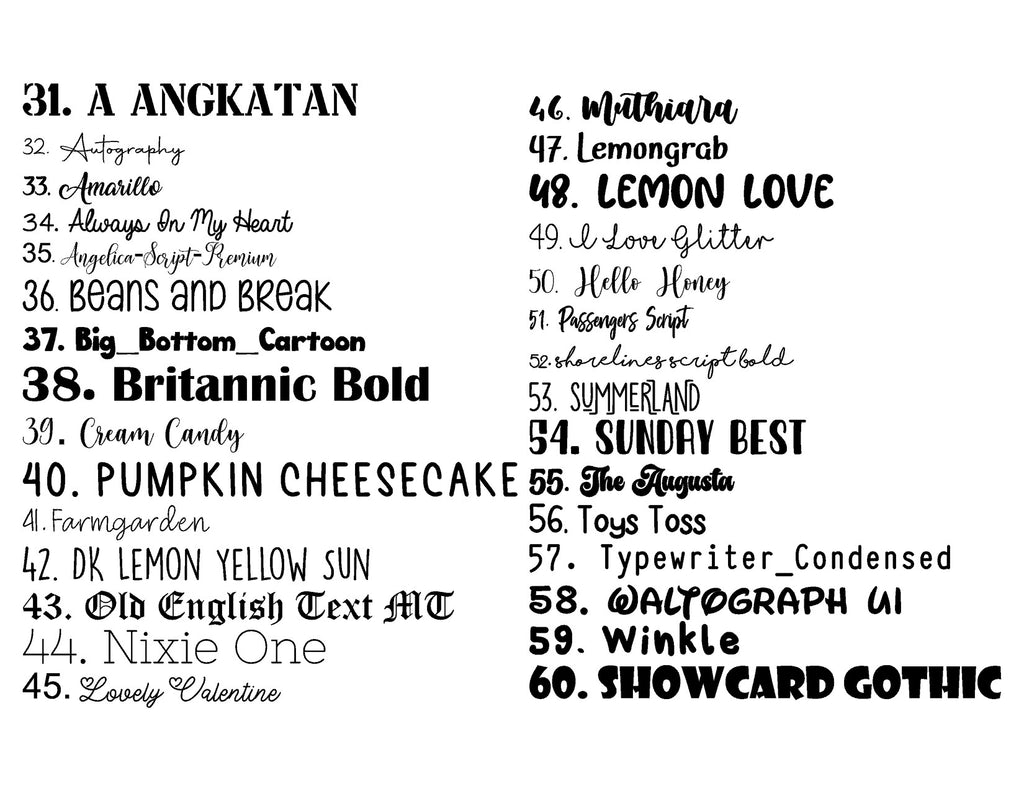 31. A ANGKATAN
32. Autography
33. Amarillo
34. Always In My Heart
35. Angelica-Script-Premium
36. Beans and Break
37. Big_Bottom_Cartoon
38. Britannic Bold
39. Cream Candy
40. PUMPKIN CHEESECAKE
41. Farmgarden
42. DK LEMON YELLOW SUN
43. Old English Text MT
44. Nixie One
45. Lovely Valentine
46. Muthiara
47. Lemongrab
48. LEMON LOVE
49. I Love Glitter
50. Hello Honey
51. Passengers Script
52. shorelines script bold
53. SUMMERLAND
54. SUNDAY BEST
55. The Augusta
56. Toys Toss
57. Typewriter_Condensed
58. WALTOGRAPH UI
59. Winkle
60. SHOWCARD GOTHIC